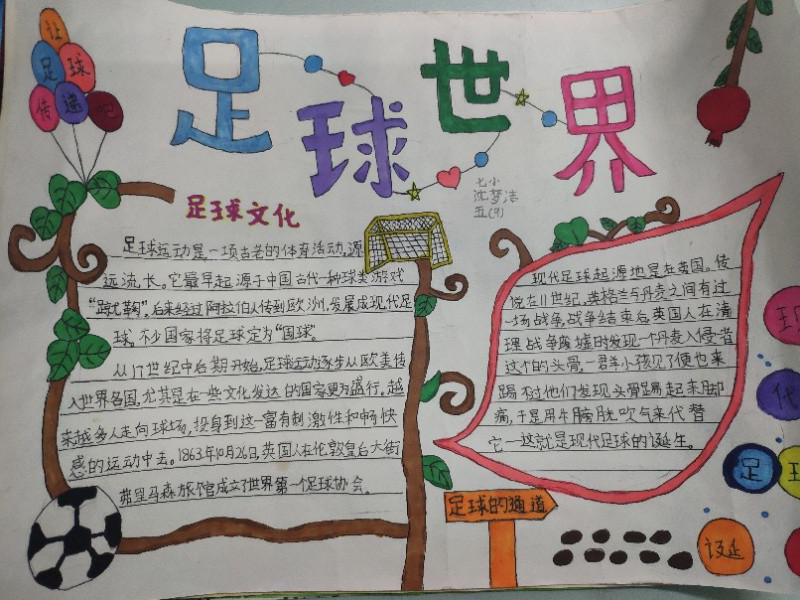 让
足球
传递吧
足球世界
七小
沈梦洁
五(9)
足球文化
足球运动是一项古老的体育活动,源
远流长。它最早起源于中国古代一种球类游戏
“蹴鞠”,后来经过阿拉伯人传到欧洲,发展成现代足
球,不少国家将足球定为“国球”。
从17世纪中后期开始,足球运动逐步从欧美传
入世界各国,尤其是在一些文化发达的国家更为盛行。越
来越多人走向球场,投身到这一富有刺激性和畅快
感的运动中去。1863年10月26日,英国人在伦敦皇后大街
弗里马森旅馆成立了世界第一个足球协会。
现代足球起源地是在英国。传
说在11世纪,英格兰与丹麦之间有过
一场战争,战争结束后英国人在清
理战争废墟时发现一个丹麦入侵者
这个的头骨,一群小孩见了便也来
踢不过他们发现头骨踢起来脚
痛,于是用牛膀胱吹气来代替
它—这就是现代足球的诞生。
现
代
足
诞
足球的通道